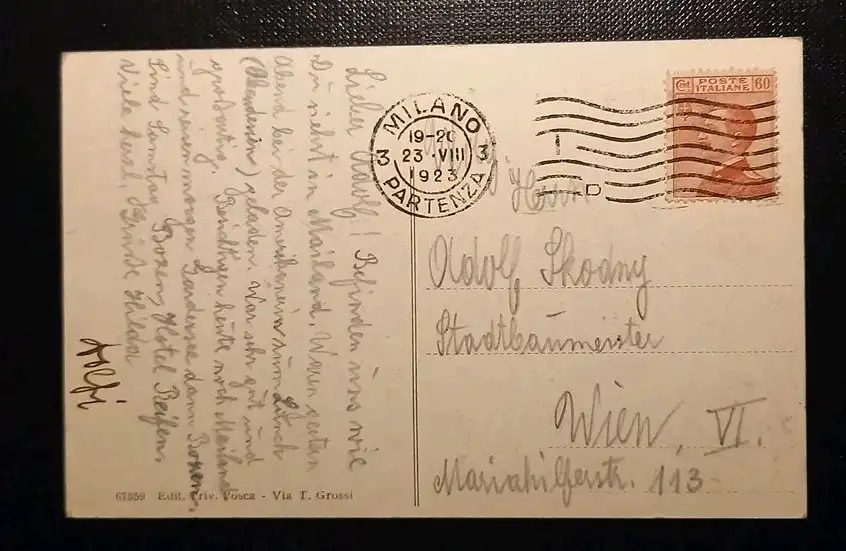 Lieber Adolf! Befinden uns wie
Du siehst in Mailand. Waren gestern
Abend bei der Amerikanerin zum
geladen. War sehr gut und
heute noch Mailand
und reisen morgen dann Bozen.
Sind Samstag Bozen, Hotel Reifen,
Viele herzl. Grüße Hilda
MILANO
19-20
3 23·VIII 3
1923
PARTENZA
POSTE
Cent ITALIANE 60
Herrn
Adolf Skodny
Stadtbaumeister
Wien, VI.
Mariahilferstr. 113
67959 Edit. Priv. Vosca - Via T. Grossi